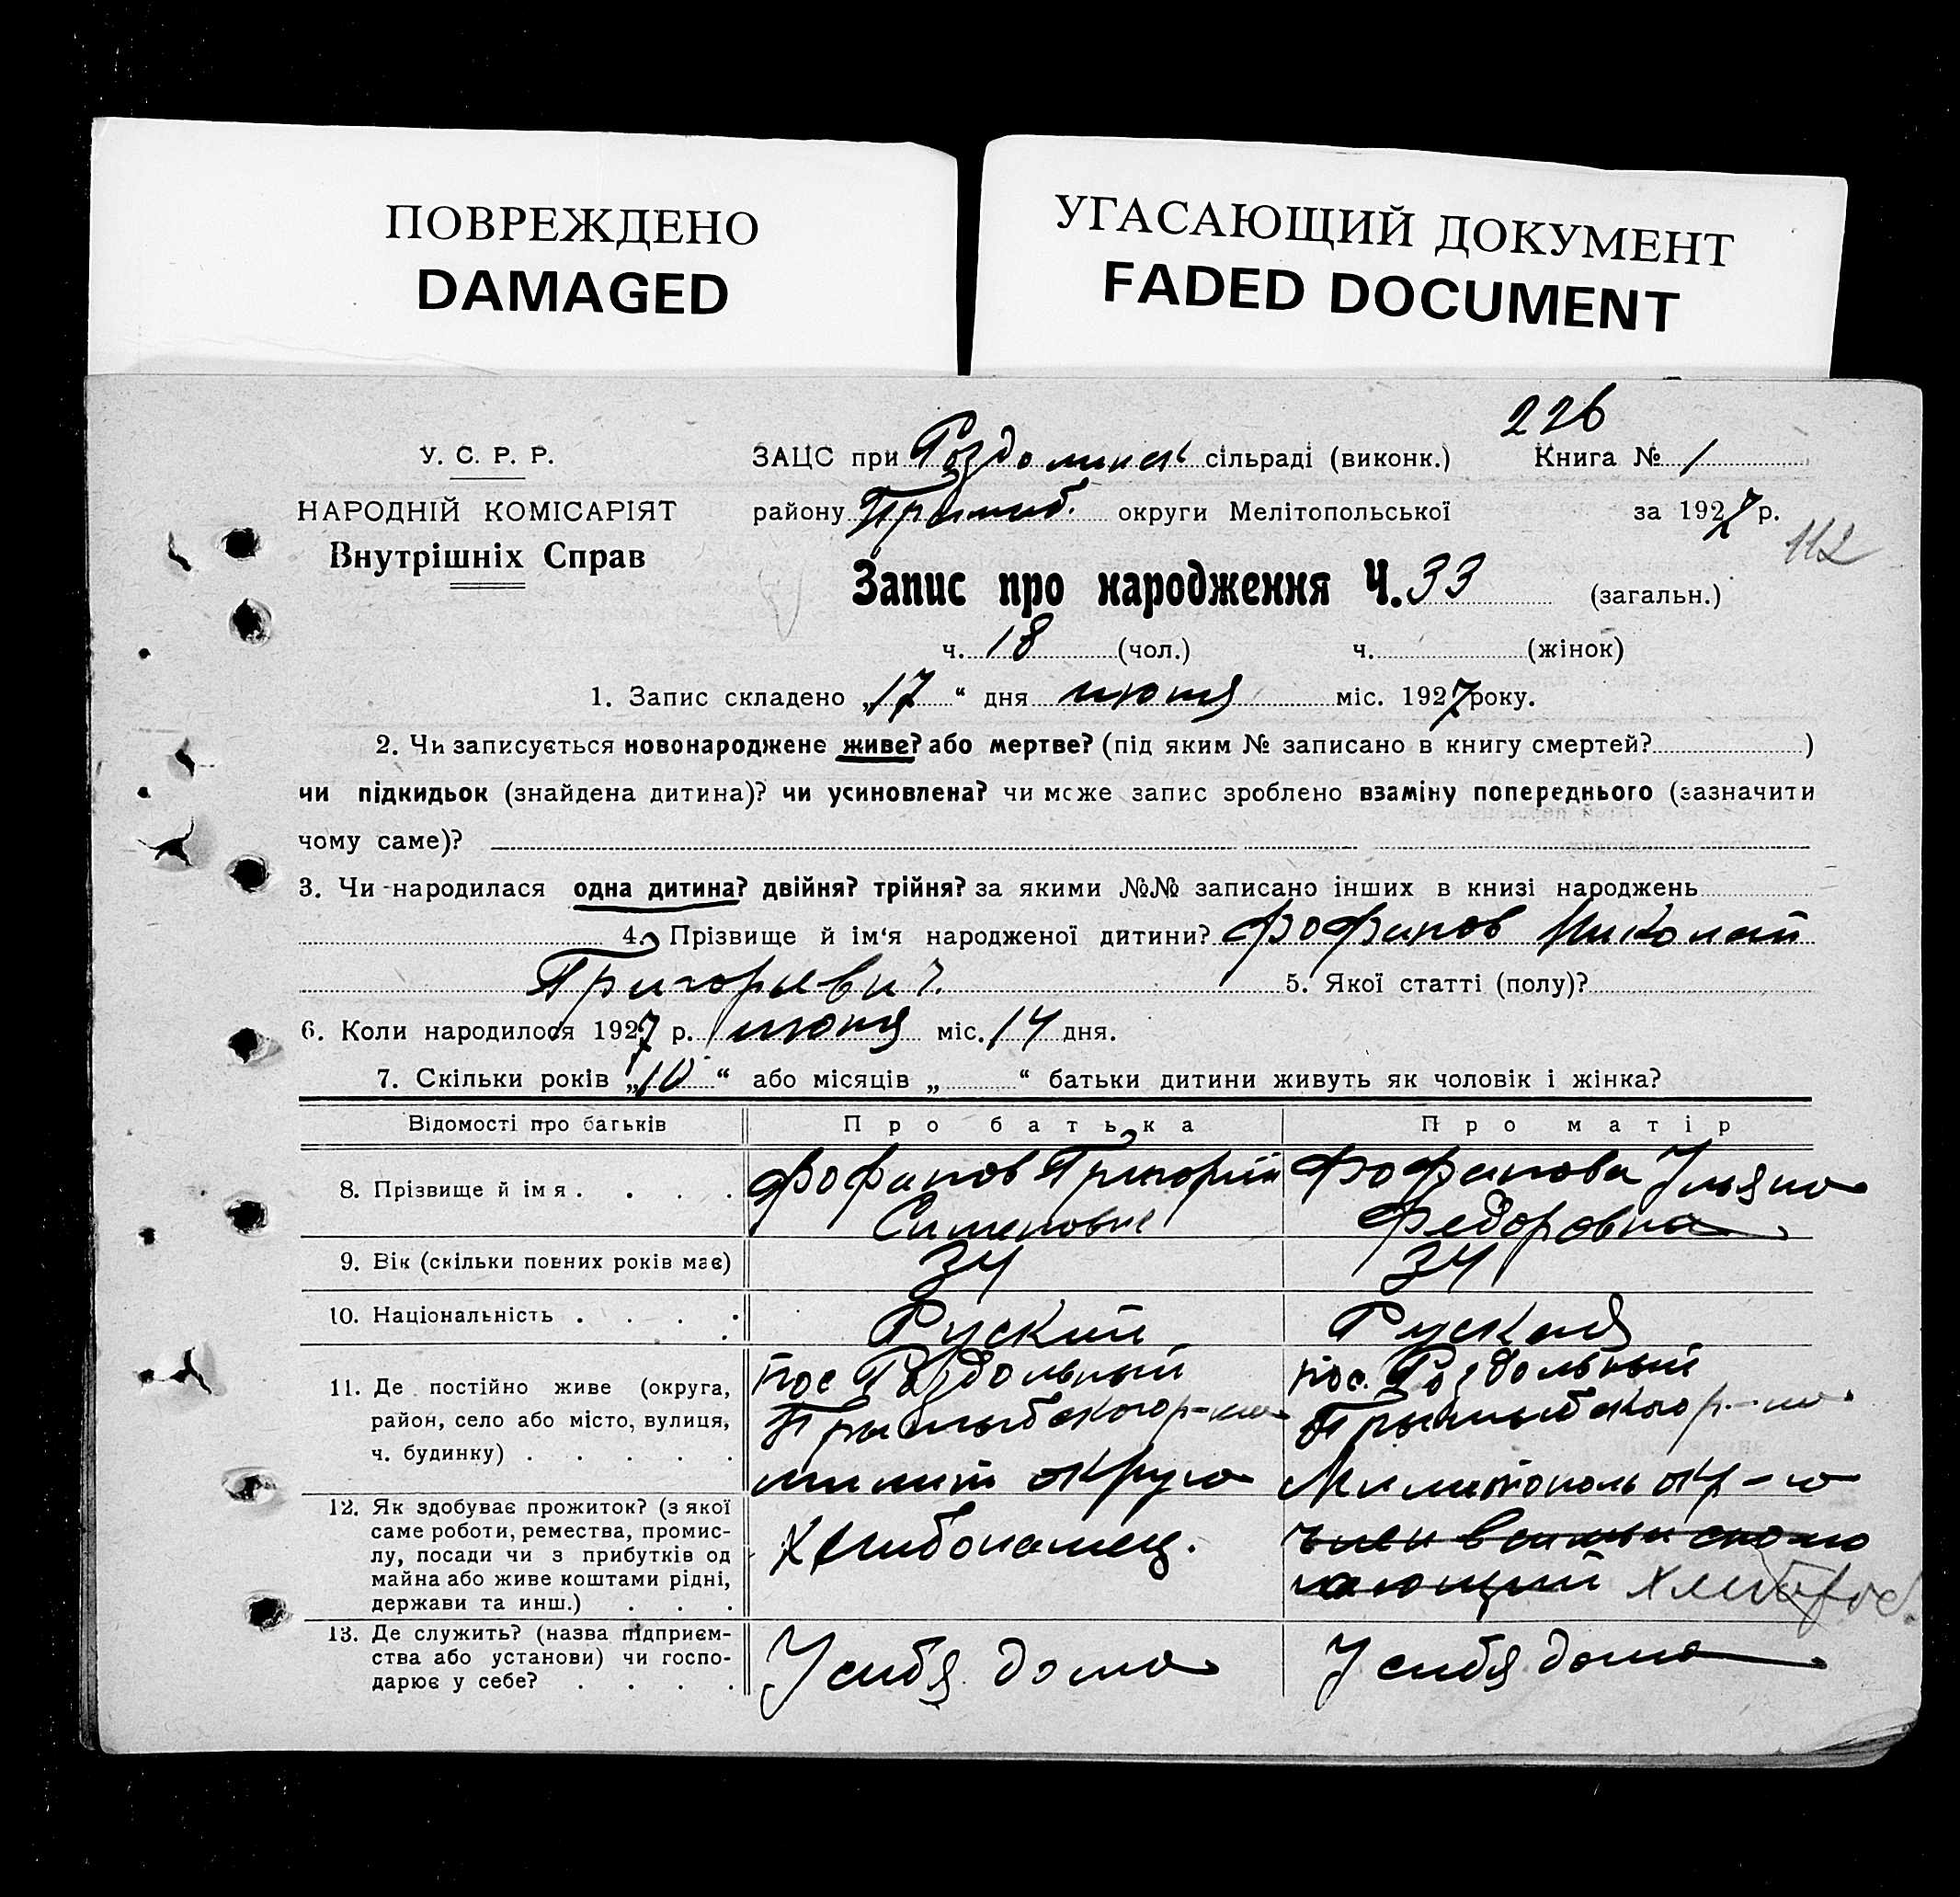 ПОВРЕЖДЕНО
DAMAGED
УГАСАЮЩИЙ ДОКУМЕНТ
FADED DOCUMENT
226
У. С. Р. Р.
ЗАЦС при сільраді (виконк.) Книга № 1
НАРОДНІЙ КОМІСАРІЯТ
району округи Мелітопольської за 1927 р.
112
Внутрішніх Справ
Запис про народження Ч. 33 (загальн.)
ч. 18 (чол.) ч. (жінок)
1. Запис складено „17“ дня июня міс. 1927 року.
2. Чи записується новонароджене живе? або мертве? (під яким № записано в книгу смертей? )
чи підкидьок (знайдена дитина)? чи усиновлена? чи може запис зроблено взаміну попереднього (зазначити
чому саме)?
3. Чи народилася одна дитина? двійня? трійня? за якими №№ записано інших в книзі народжень
4. Прізвище й ім‘я народженої дитини? Фофанов Николай
Григорьевич 5. Якої статті (полу)?
6. Коли народилося 1927 р. июня міс. 14 дня.
7. Скільки років „10“ або місяців „ “ батьки дитини живуть як чоловік і жінка?
Відомості про батьків Про батька Про матір
8. Прізвище й імя. Фофанов Григорий Фофанова Ульяна
Федоровна
9. Вік (скільки повних років має) 34 34
10. Національність Руский Руская
11. Де постійно живе (округа, район, село або місто, вулиця, ч. будинку)
пос Раздольный пос. Раздольный
округа
12. Як здобуває прожиток? (з якої
саме роботи, ремества, промис-
лу, посади чи з прибутків од
майна або живе коштами рідні,
держави та инш.)
13. Де служить? (назва підприєм-
ства або установи) чи госпо-
дарює у себе?
У сибя дома У сибя дома